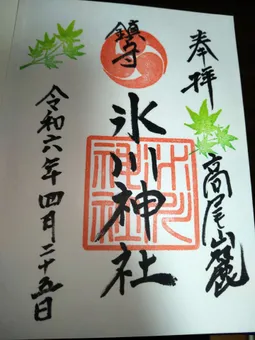 奉拝
高尾山麓
鎮守
氷川神社
令和六年四月二十五日